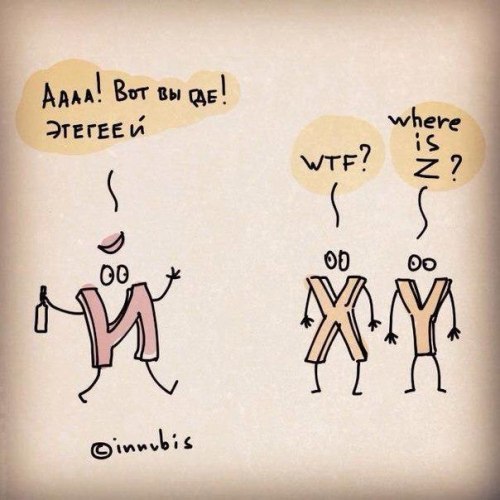 Аааа! Вот вы где!
Этегеей
WTF?
where
is
Z?
И
X
Y
©innubis